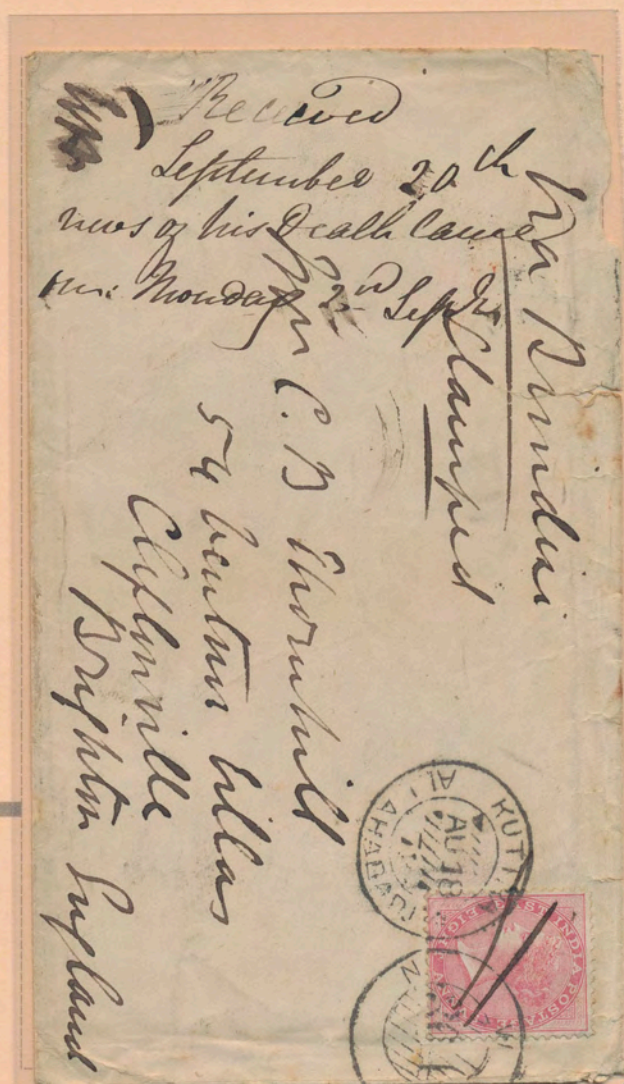 Received
September 20th
news of his Death Came
on: Monday 2nd Septr
Via Brindisi
Stamped
Mrs C. B Thornhill
54 Ventnor Villas
Cliftonville
Brighton England
KUTTRA
ALLAHABAD
AU 18
EAST INDIA POSTAGE
EIGHT ANNAS